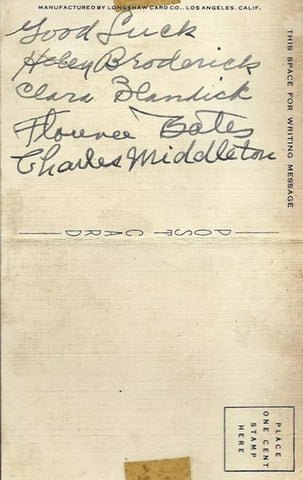 MANUFACTURED BY LONGSHAW CARD CO., LOS ANGELES, CALIF.
Good Luck
Helen Broderick
Clara Blandick
Florence Bates
Charles Middleton
THIS SPACE FOR WRITING MESSAGE
POST CARD
PLACE
ONE CENT
STAMP
HERE